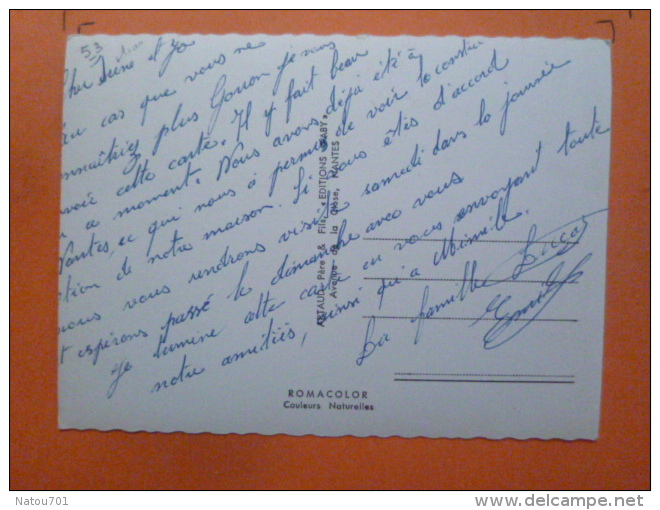 53
Cher Irène et Jo
au cas que vous ne
connaîtriez plus Gorron je vous
envoie cette carte. Il y fait beau
en ce moment. Nous avons déjà été à
Nantes, ce qui nous à permis de voir la constru
ction de notre maison. Si vous êtes d'accord
nous vous rendrons visite samedi dans la journée
et espérons passé le dimanche avec vous
Je termine cette carte en vous envoyant toute
notre amitiés, ainsi qu'à
La famille
ARTAUD Père & Fils, « EDITIONS GABY »,
Avenue de la Close, NANTES
ROMACOLOR
Couleurs Naturelles
Natou701
www.delcampe.net